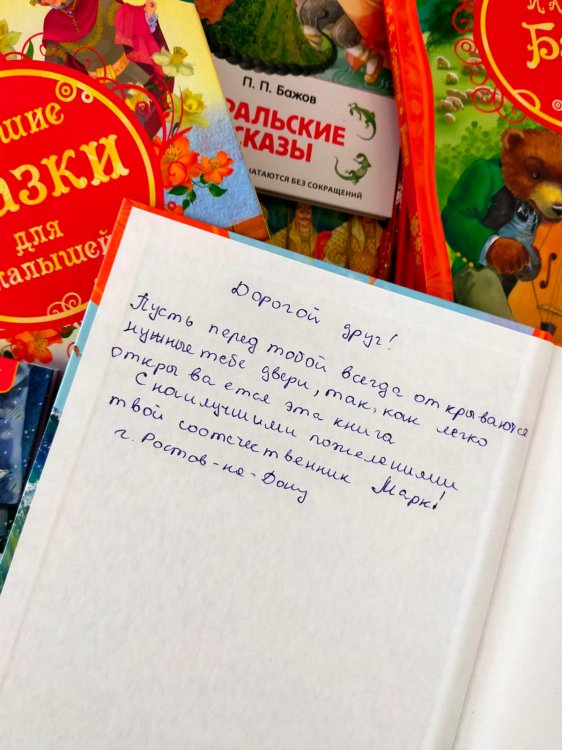 шие
азки
для
малышей
П. П. Бажов
РАЛЬСКИЕ
СКАЗЫ
ЧАТАЮТСЯ БЕЗ СОКРАЩЕНИЙ
Ба
Дорогой друг!
Пусть перед тобой всегда открываются
нужные тебе двери, так, как легко
откры ва ется эта книга
С наилучшими пожеланиями
твой соотечественник Марк!
г. Ростов-на-Дону